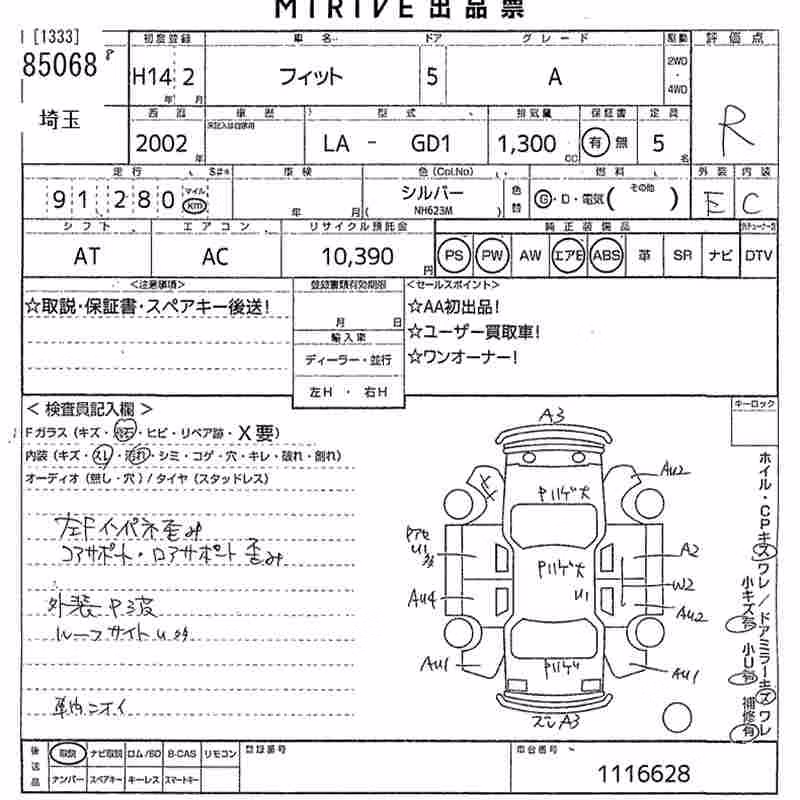 MIRIVE 出品票
[1333]
85068 8
埼玉
初度登録 車名 ドア グレード 駆動 評価点
H14 2 フィット 5 A 2WD・4WD R
年 月
西暦 車歴 型式 排気量 保証書 定員
2002 年 LA - GD1 1,300 cc 有 無 5 名
走行 S#* 車検 色(Col.No) 燃料 外装 内装
91,280 マイル km 年 月 シルバー NH623M 色替 G・D・電気( その他 ) E C
シフト エアコン リサイクル預託金 純正装備品
AT AC 10,390 円 PS PW AW エアB ABS 革 SR ナビ DTV
<注意事項> 登録書類有効期限 <セールスポイント>
☆取説・保証書・スペアキー後送! 月 日 ☆AA初出品!
輸入車 ☆ユーザー買取車!
ディーラー・並行 ☆ワンオーナー!
左H ・ 右H
<検査員記入欄> キーロック
Fガラス(キズ・飛石・ヒビ・リペア跡・X要)
内装(キズ・スレ・汚れ・シミ・コゲ・穴・キレ・破れ・創れ)
オーディオ(無し・穴)/タイヤ(スタッドレス)
左Fインパネ歪み
コアサポート・ロアサポート歪み
外装P3波
ルーフサイドU
車内ニオイ
A3
AU2
A2
W2
AU2
AU1
U1
AU4
AU1
U1
スレA3
ホイル・CPキズワレ/ドアミラーキズワレ
小キズ有 小U有 補修有
後送品 取説 ナビ取説 ロム/SD B-CAS リモコン 登録番号 車台番号
ナンバー スペアキー キーレス スマートキー 1116628